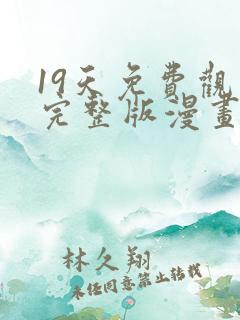 19天免費觀
完整版漫畫
林久翔
未经同意禁止转载